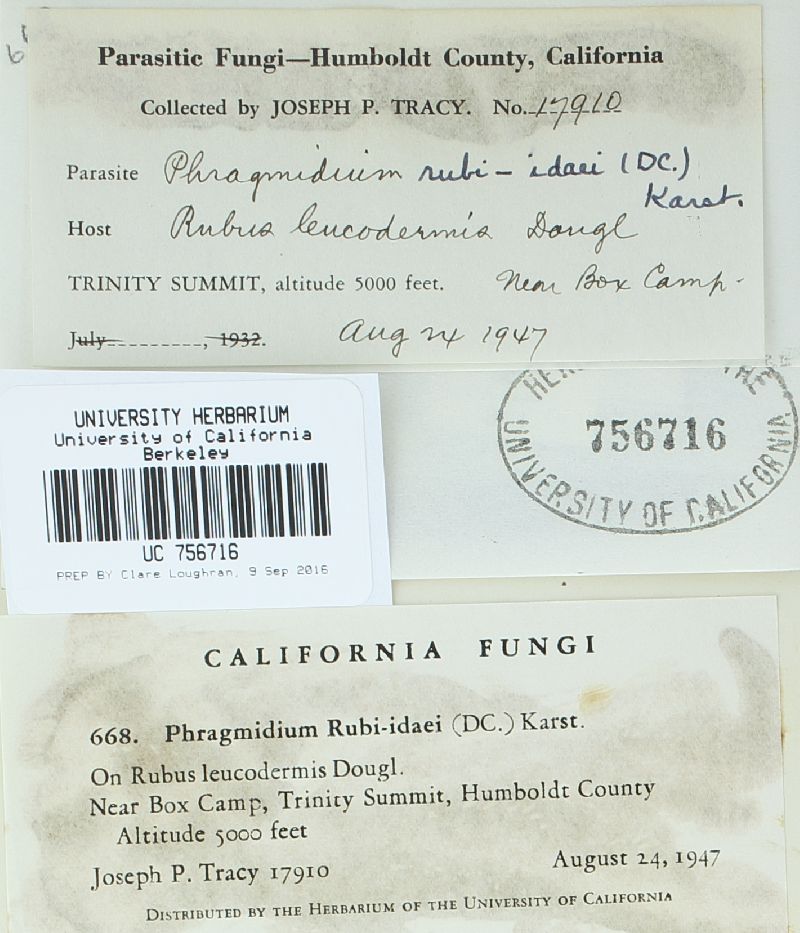 Parasitic Fungi—Humboldt County, California
Collected by JOSEPH P. TRACY. No. 17910
Parasite Phragmidium rubi-idaei (DC.) Karst.
Host Rubus leucodermis Dougl
TRINITY SUMMIT, altitude 5000 feet. Near Box Camp-
July ---------, 1932. Aug 24 1947
UNIVERSITY HERBARIUM
University of California
Berkeley
UC 756716
PREP BY Clare Loughran, 9 Sep 2016
756716
UNIVERSITY OF CALIFORNIA
CALIFORNIA FUNGI
668. Phragmidium Rubi-idaei (DC.) Karst.
On Rubus leucodermis Dougl.
Near Box Camp, Trinity Summit, Humboldt County
Altitude 5000 feet
Joseph P. Tracy 17910 August 24, 1947
DISTRIBUTED BY THE HERBARIUM OF THE UNIVERSITY OF CALIFORNIA